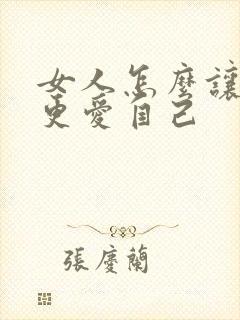 女人怎麼讓
更愛自己
張慶蘭